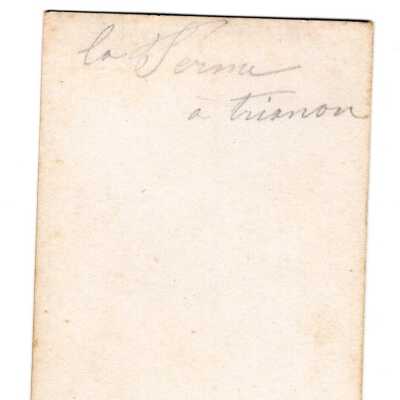 la Ferme
à trianon